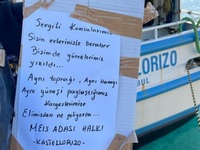 Sevgili Komşularımız
Sizin evlerinizle beraber
Bizimde yüreklerimiz
yıkıldı...
Aynı toprağı, Aynı Havayı
Aynı güneşi paylaştığımız
Kardeşlerimize
Elimizden ne geliyorsa...
MEİS ADASI HALKI
-KASTELLORIZO-
LORIZO
BUL